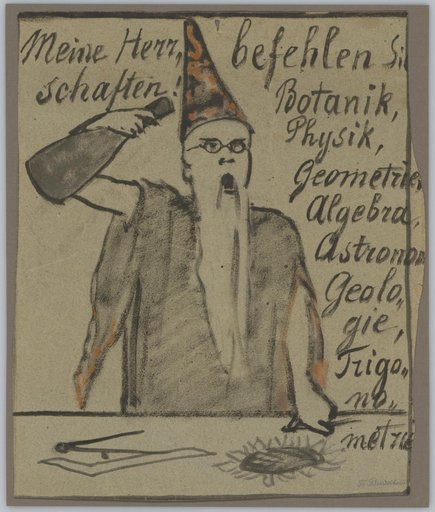 Meine Herr„
schaften!
befehlen Si
Botanik,
Physik,
Geometrie,
Algebra,
Astrono
Geolo„
gie,
Trigo„
no„
metrie